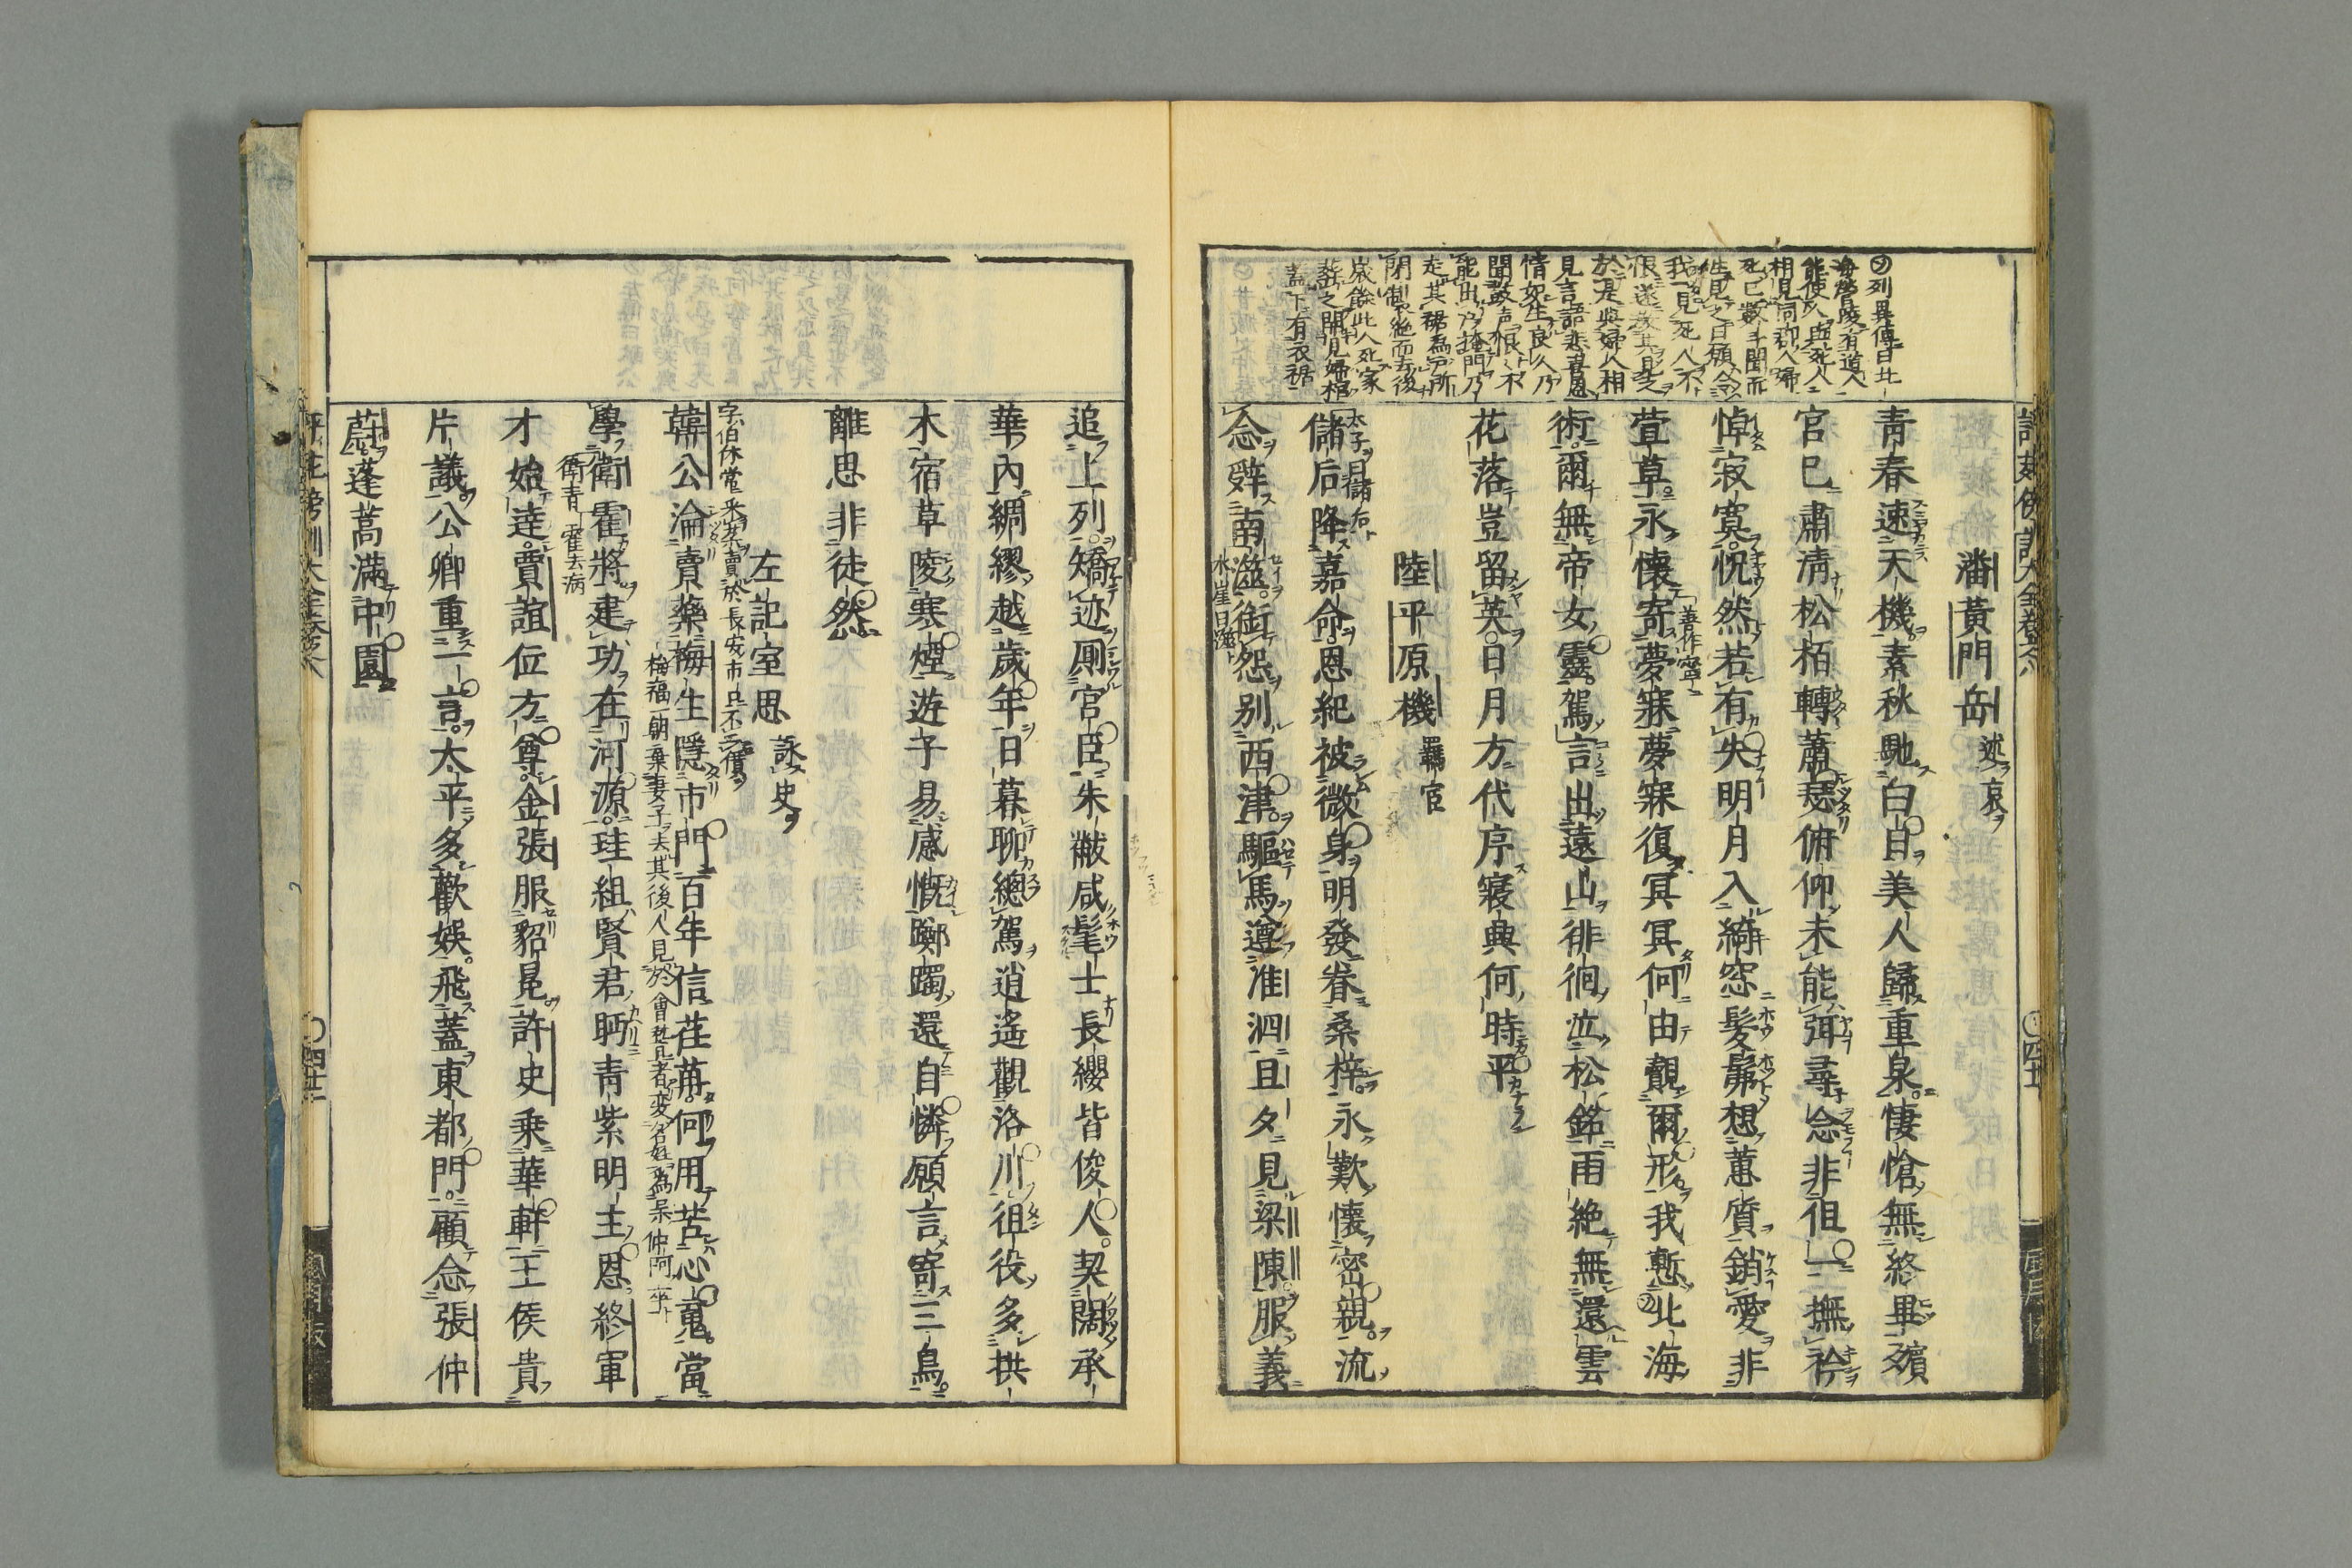 潘黃門岳述哀
青春速天機素秋馳白日美人歸重泉悽愴無終畢殯
官已肅清松栢轉蕭瑟俯仰未能弭尋念非但一撫衿
悼寂寞怳然若有失明月入綺窓髣髴想蕙質銷愛非
萱草永懷寄夢寐夢寐復冥冥何由覿爾形我慙北海
術爾無帝女靈駕言出遠山徘徊泣松銘雨絶無還雲
花落豈留英日月方代序寢興何時平
陸平原機羈官
太子曰儲后
儲后降嘉命恩紀被微身明發眷桑梓永歎懷密親流
念辭南澨銜怨别西津驅馬遵淮泗旦夕見梁陳服義
水崖曰澨
㋦列異傳曰北
海營陵有道人
能使人與死人
相見同郡人婦
死已數年聞而
徃見之曰願令
我一見死人不
恨遂敎其見之
於是與婦人相
見言語悲喜恩
情如生良久乃
聞鼓声恨恨不
能出戶掩門乃
走其裾為戶所
閉掣絶而去後
歲餘此人死家
葬之開見婦棺
蓋下有衣裾
追上列矯迹厠宮臣朱黻咸髦士長纓皆俊人契闊承
華内綢繆越歲年日暮聊總駕逍遙觀洛川徂役多拱
木宿草陵寒煙遊子易感慨躑躅還自憐願言寄三鳥
離思非徒然
左記室思詠史
字伯休常采藥賣於長安市口不二價
韓公淪賣藥梅生隱市門百年信荏苒何用苦心䰟當
梅福一朝棄妻子去其後人見於會稽見者変名姓為吴仲阿卒
學衛霍將建功在河源珪組賢君眄青紫明主恩終軍
衛青霍去病
才始達賈誼位方尊金張服貂冕許史乗華軒王侯貴
片議公卿重一言太平多歡娛飛蓋東都門顧念張仲
蔚蓬蒿滿中園